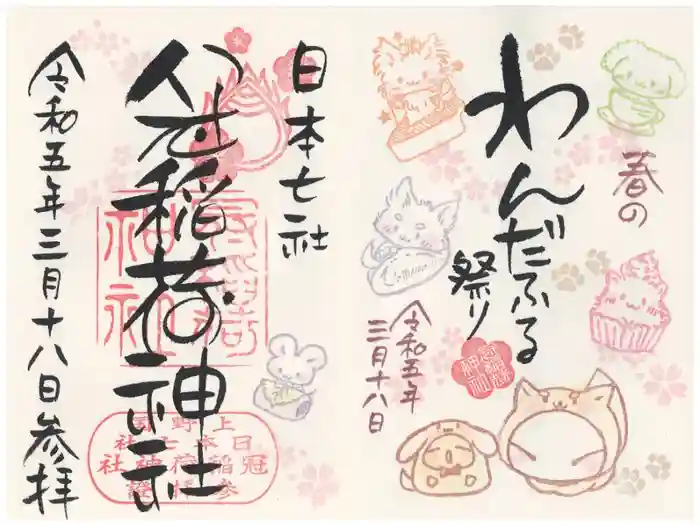 春の
わんだふる
祭り
令和五年
三月十八日
日本七社
冠稲荷神社
令和五年三月十八日参拝
上野國
日本七社
冠稲荷神社
参拝證